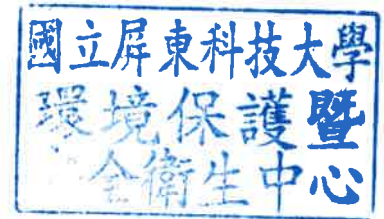 國立屏東科技大學
環境保護暨
全衛生中心